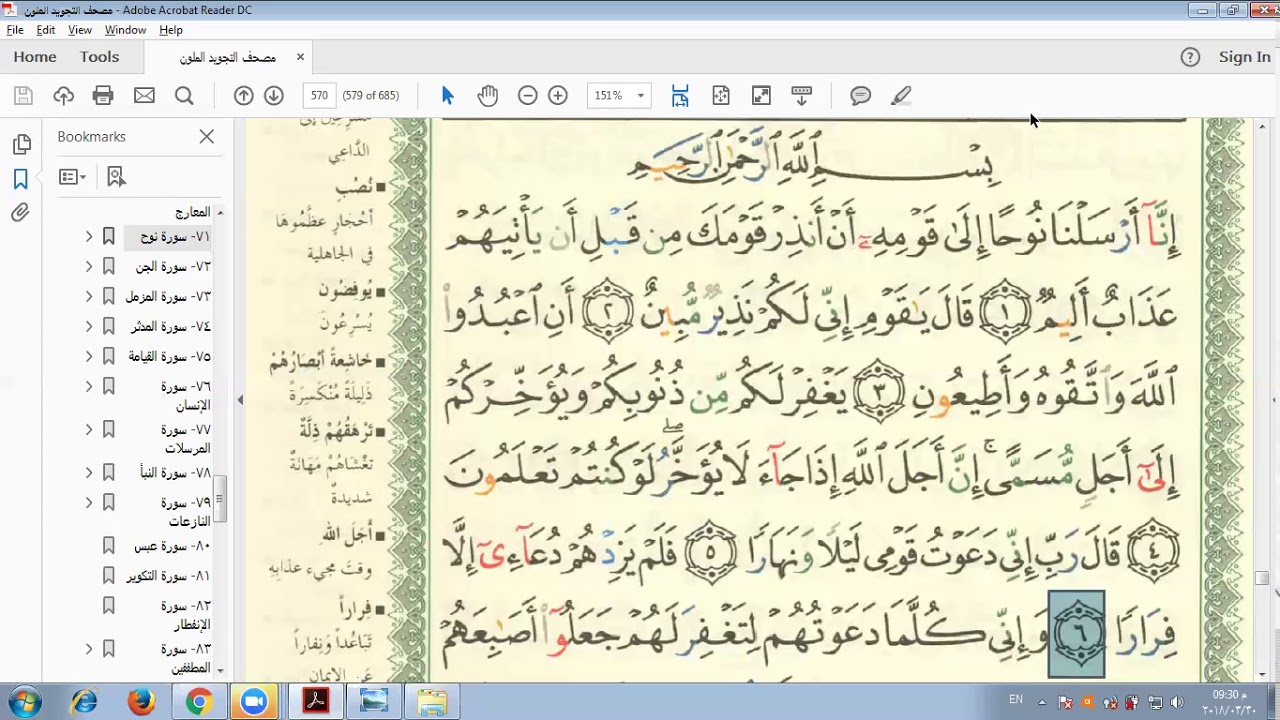 مصحف التجويد الملون - Adobe Acrobat Reader DC
File Edit View Window Help
Home Tools مصحف التجويد الملون × ? Sign In
570 (579 of 685) 151%
Bookmarks
المعارج
٧١- سورة نوح
٧٢- سورة الجن
٧٣- سورة المزمل
٧٤- سورة المدثر
٧٥- سورة القيامة
٧٦- سورة
الإنسان
٧٧- سورة
المرسلات
٧٨- سورة النبأ
٧٩- سورة
النازعات
٨٠- سورة عبس
٨١- سورة التكوير
٨٢- سورة
الإنفطار
٨٣- سورة
المطففين
الدَّاعِي
■ نُصُبٍ
أَحْجَارٍ عَظَّمُوهَا
في الجاهلية
■ يُوفِضُون
يُسْرِعُونَ
■ خَاشِعةً أبْصَارُهُمْ
ذَلِيلَةً مُنْكَسِرَةً
■ تَرْهَقُهُمْ ذِلَّةٌ
تَغْشَاهُمْ مَهَانَةٌ
شديدةٌ
■ أَجَلَ الله
وقتَ مجيء عذابِهِ
■ فِراراً
تَبَاعُداً وَنِفاراً
عَنِ الإيمان
بِسْمِ ٱللَّهِ ٱلرَّحْمَٰنِ ٱلرَّحِيمِ
إِنَّآ أَرْسَلْنَا نُوحًا إِلَىٰ قَوْمِهِۦٓ أَنْ أَنذِرْ قَوْمَكَ مِن قَبْلِ أَن يَأْتِيَهُمْ
عَذَابٌ أَلِيمٌ ١ قَالَ يَٰقَوْمِ إِنِّى لَكُمْ نَذِيرٌ مُّبِينٌ ٢ أَنِ ٱعْبُدُوا۟
ٱللَّهَ وَٱتَّقُوهُ وَأَطِيعُونِ ٣ يَغْفِرْ لَكُم مِّن ذُنُوبِكُمْ وَيُؤَخِّرْكُمْ
إِلَىٰٓ أَجَلٍ مُّسَمًّى ۚ إِنَّ أَجَلَ ٱللَّهِ إِذَا جَآءَ لَا يُؤَخَّرُ ۖ لَوْ كُنتُمْ تَعْلَمُونَ
٤ قَالَ رَبِّ إِنِّى دَعَوْتُ قَوْمِى لَيْلًا وَنَهَارًا ٥ فَلَمْ يَزِدْهُمْ دُعَآءِىٓ إِلَّا
فِرَارًا ٦ وَإِنِّى كُلَّمَا دَعَوْتُهُمْ لِتَغْفِرَ لَهُمْ جَعَلُوٓا۟ أَصَٰبِعَهُمْ
EN
09:30 م
٢٠١٨/٠٣/٣٠